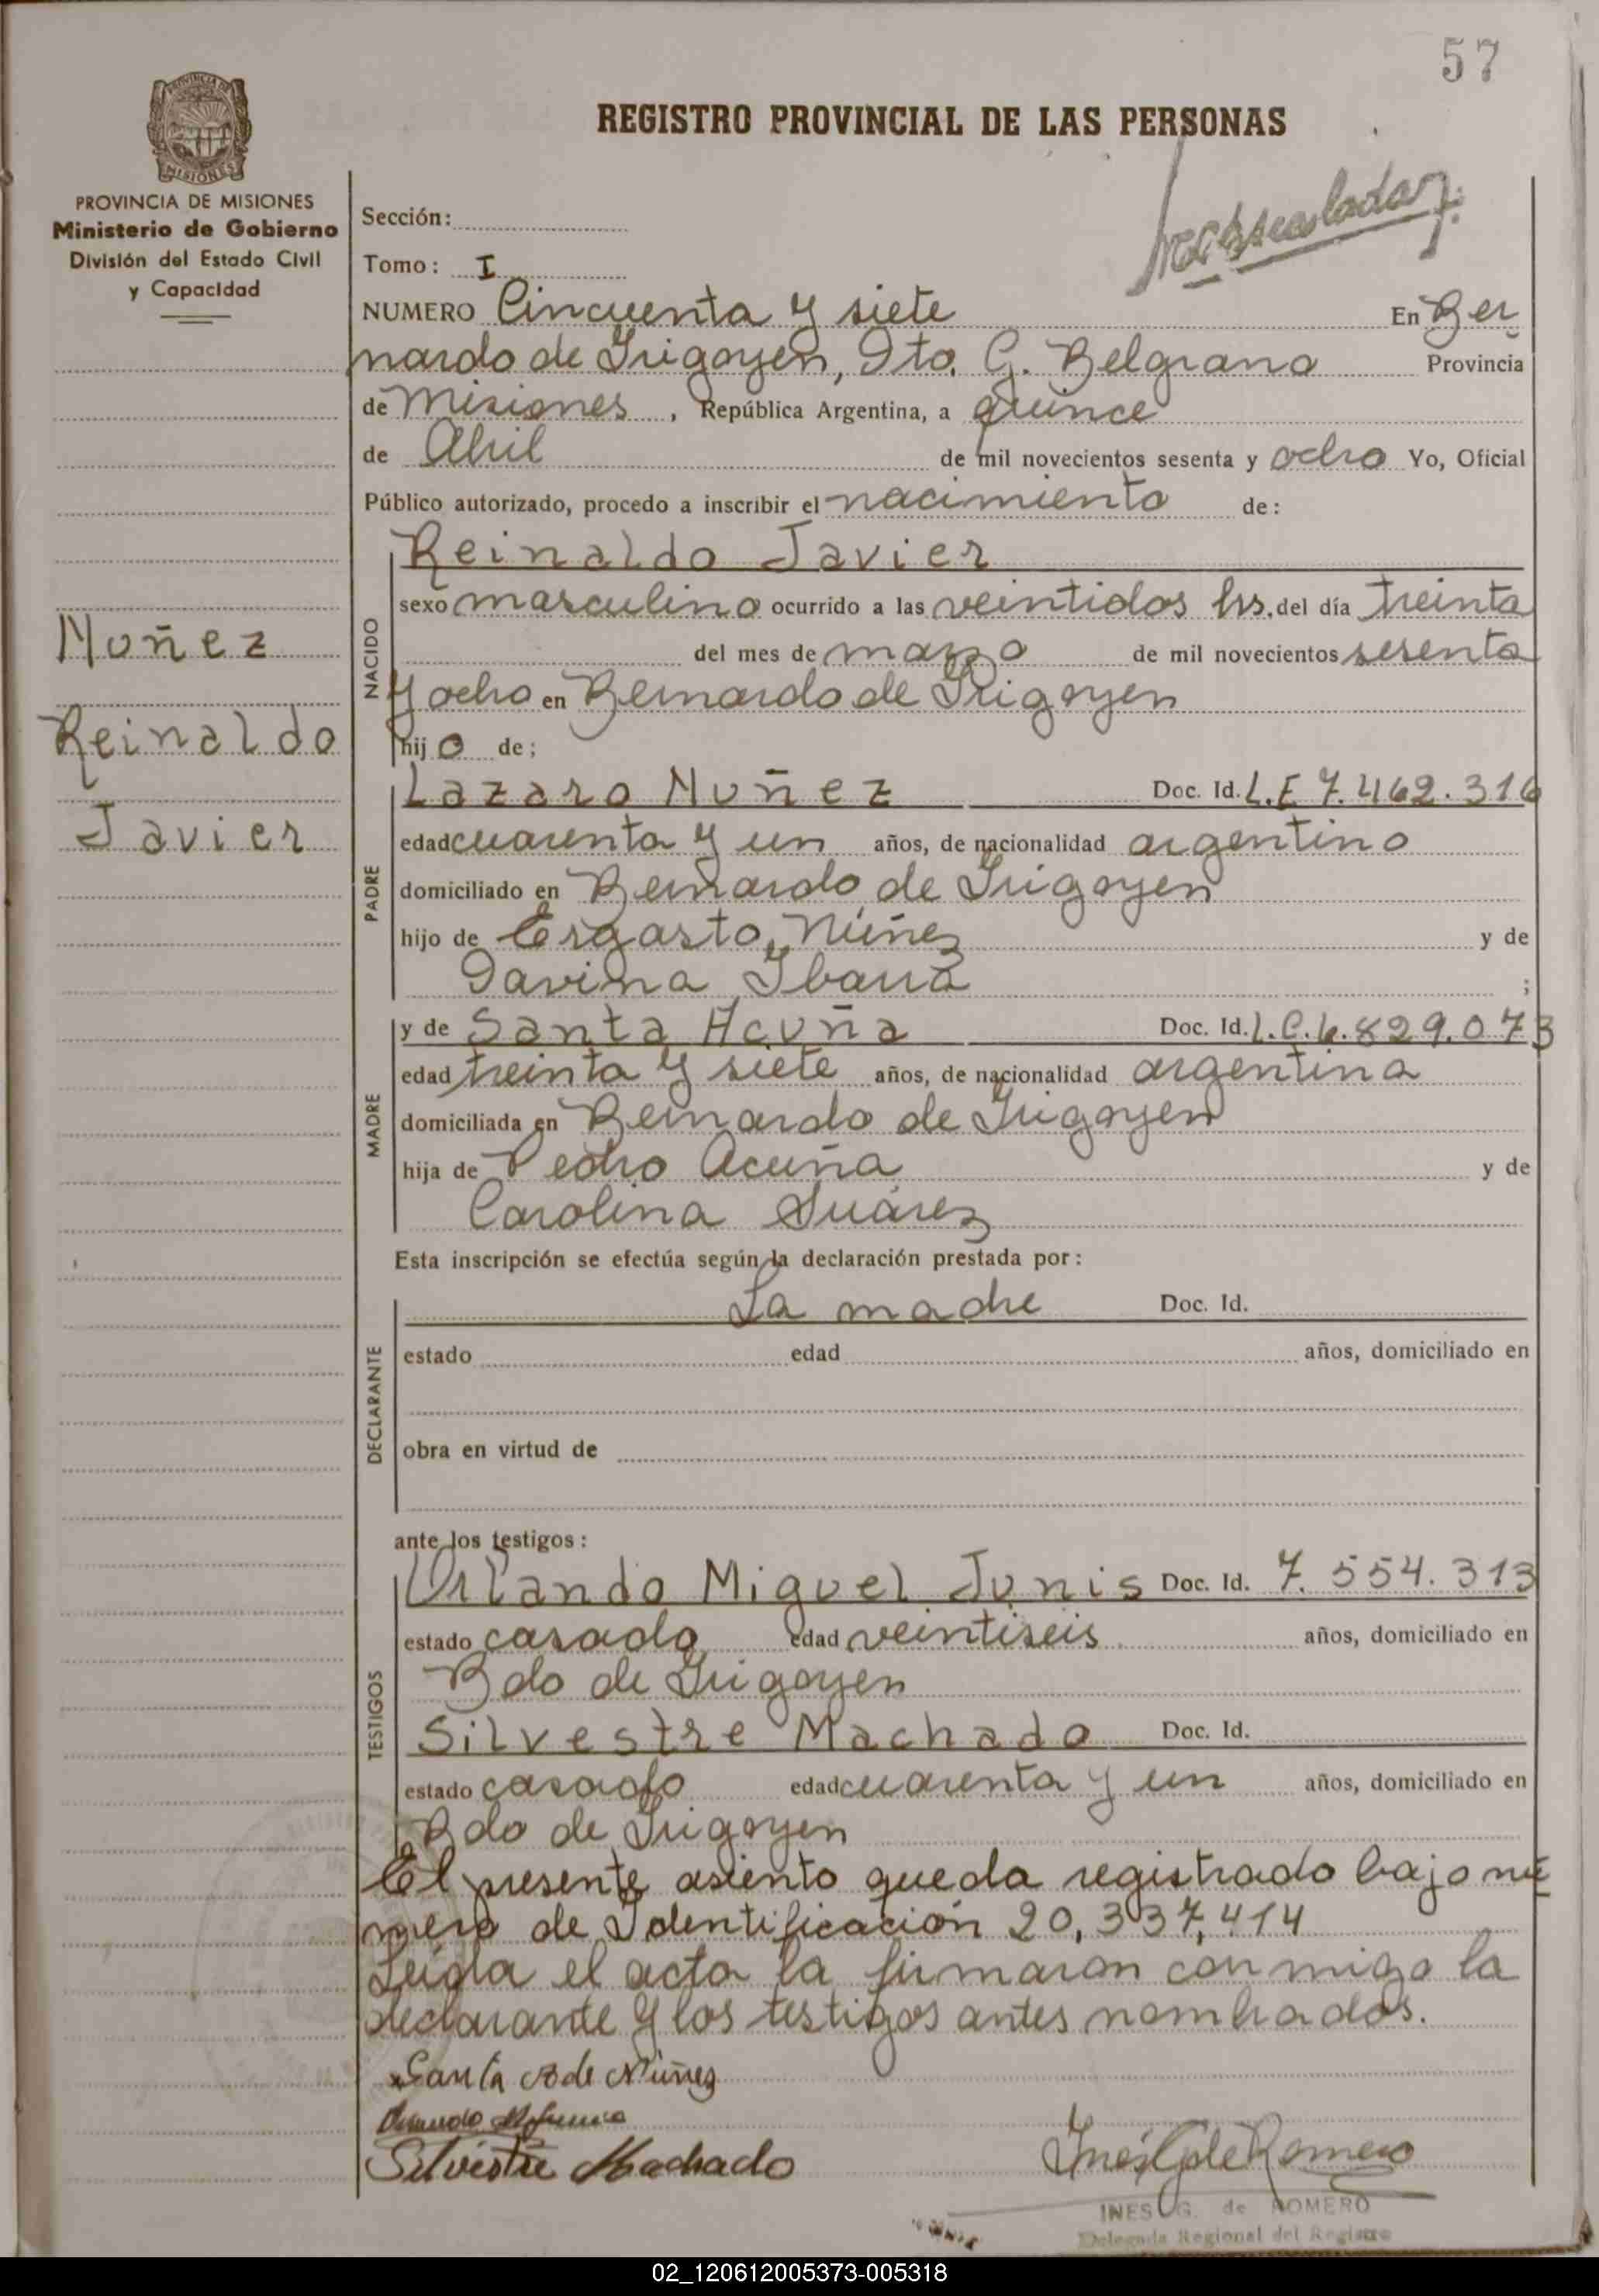 57
REGISTRO PROVINCIAL DE LAS PERSONAS
PROVINCIA DE MISIONES
Ministerio de Gobierno
División del Estado Civil
y Capacidad
Sección:
Tomo: I
NUMERO Cincuenta y siete En Ber
nardo de Irigoyen, Dto. G. Belgrano Provincia
de Misiones, República Argentina, a quince
de Abril de mil novecientos sesenta y ocho Yo, Oficial
Público autorizado, procedo a inscribir el nacimiento de:
Nuñez
Reinaldo
Javier
NACIDO
Reinaldo Javier
sexo masculino ocurrido a las veintidos hs. del día treinta
del mes de marzo de mil novecientos sesenta
y ocho en Bernardo de Irigoyen
hijo de;
PADRE
Lazaro Nuñez Doc. Id. L.E 7.462.316
edad cuarenta y un años, de nacionalidad argentino
domiciliado en Bernardo de Irigoyen
hijo de Ergasto Núñez y de
Davina Ibarra ;
MADRE
y de Santa Acuña Doc. Id. L.C.6.829.073
edad treinta y siete años, de nacionalidad argentina
domiciliada en Bernardo de Irigoyen
hija de Pedro Acuña y de
Carolina Suárez
Esta inscripción se efectúa según la declaración prestada por:
DECLARANTE
La madre Doc. Id.
estado edad años, domiciliado en
obra en virtud de
ante los testigos:
TESTIGOS
Orlando Miguel Junis Doc. Id. 7.554.313
estado casado edad veintiseis años, domiciliado en
Bdo de Irigoyen
Silvestre Machado Doc. Id.
estado casado edad cuarenta y un años, domiciliado en
Bdo de Irigoyen
El presente asiento queda registrado bajo nú
mero de Identificación 20,337,414
Leída el acta la firmaron conmigo la
declarante y los testigos antes nombrados.
Santa A de Núñez
Silvestre Machado
Ines G de Romero
INES G. de ROMERO
Delegada Regional del Registro
02_120612005373-005318